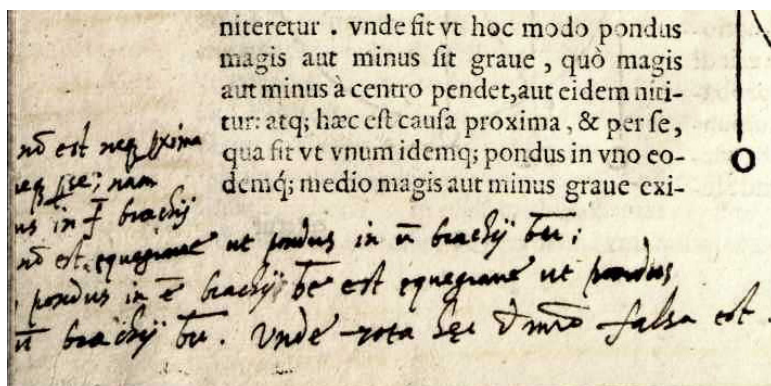 niteretur . vnde fit vt hoc modo pondus
magis aut minus sit graue , quò magis
aut minus à centro pendet, aut eidem niti-
tur: atq; hæc est causa proxima , & per se,
qua fit vt vnum idemq; pondus in vno eo-
demq́; medio magis aut minus graue exi-
nō est neq; ꝓxima
neq; ꝑse; nam
us in f̄ brachij
nō est equegraue ut pondus in ū brachij b̄u;
pondus in ē brachij b̄e est equegraue ut pondus
ū brachij b̄u. Unde tota hęc falsa est.
o